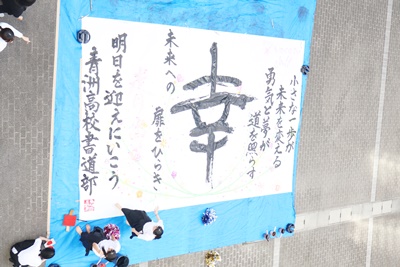 小さな一歩が
未来を変える
勇気と夢が
道を照らす
幸
未来への
扉をひらき
明日を迎えにいこう
青洲高校書道部